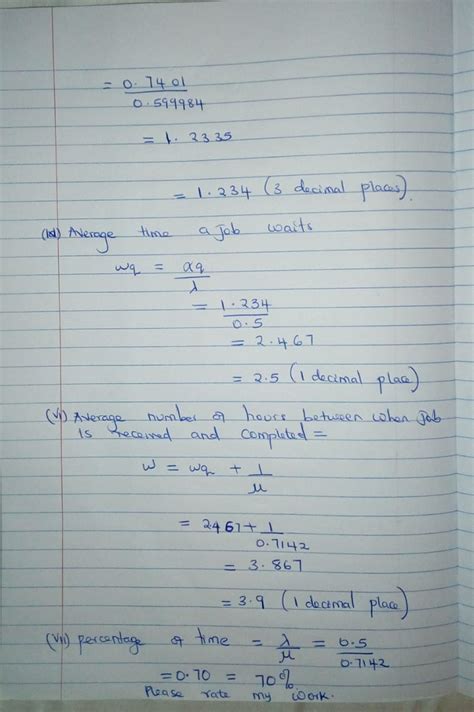 = 0.7401
0.599984
= 1.2335
= 1.234 (3 decimal places).
Average time a job waits
wq = αq
λ
= 1.234
0.5
= 2.467
= 2.5 (1 decimal place)
(vi) Average number of hours between when job
is received and completed =
w = wq + 1
μ
= 2467 + 1
0.7142
= 3.867
= 3.9 (1 decimal place)
(vii) percentage of time = λ = 0.5
μ 0.7142
= 0.70 = 70%
Please rate my work.